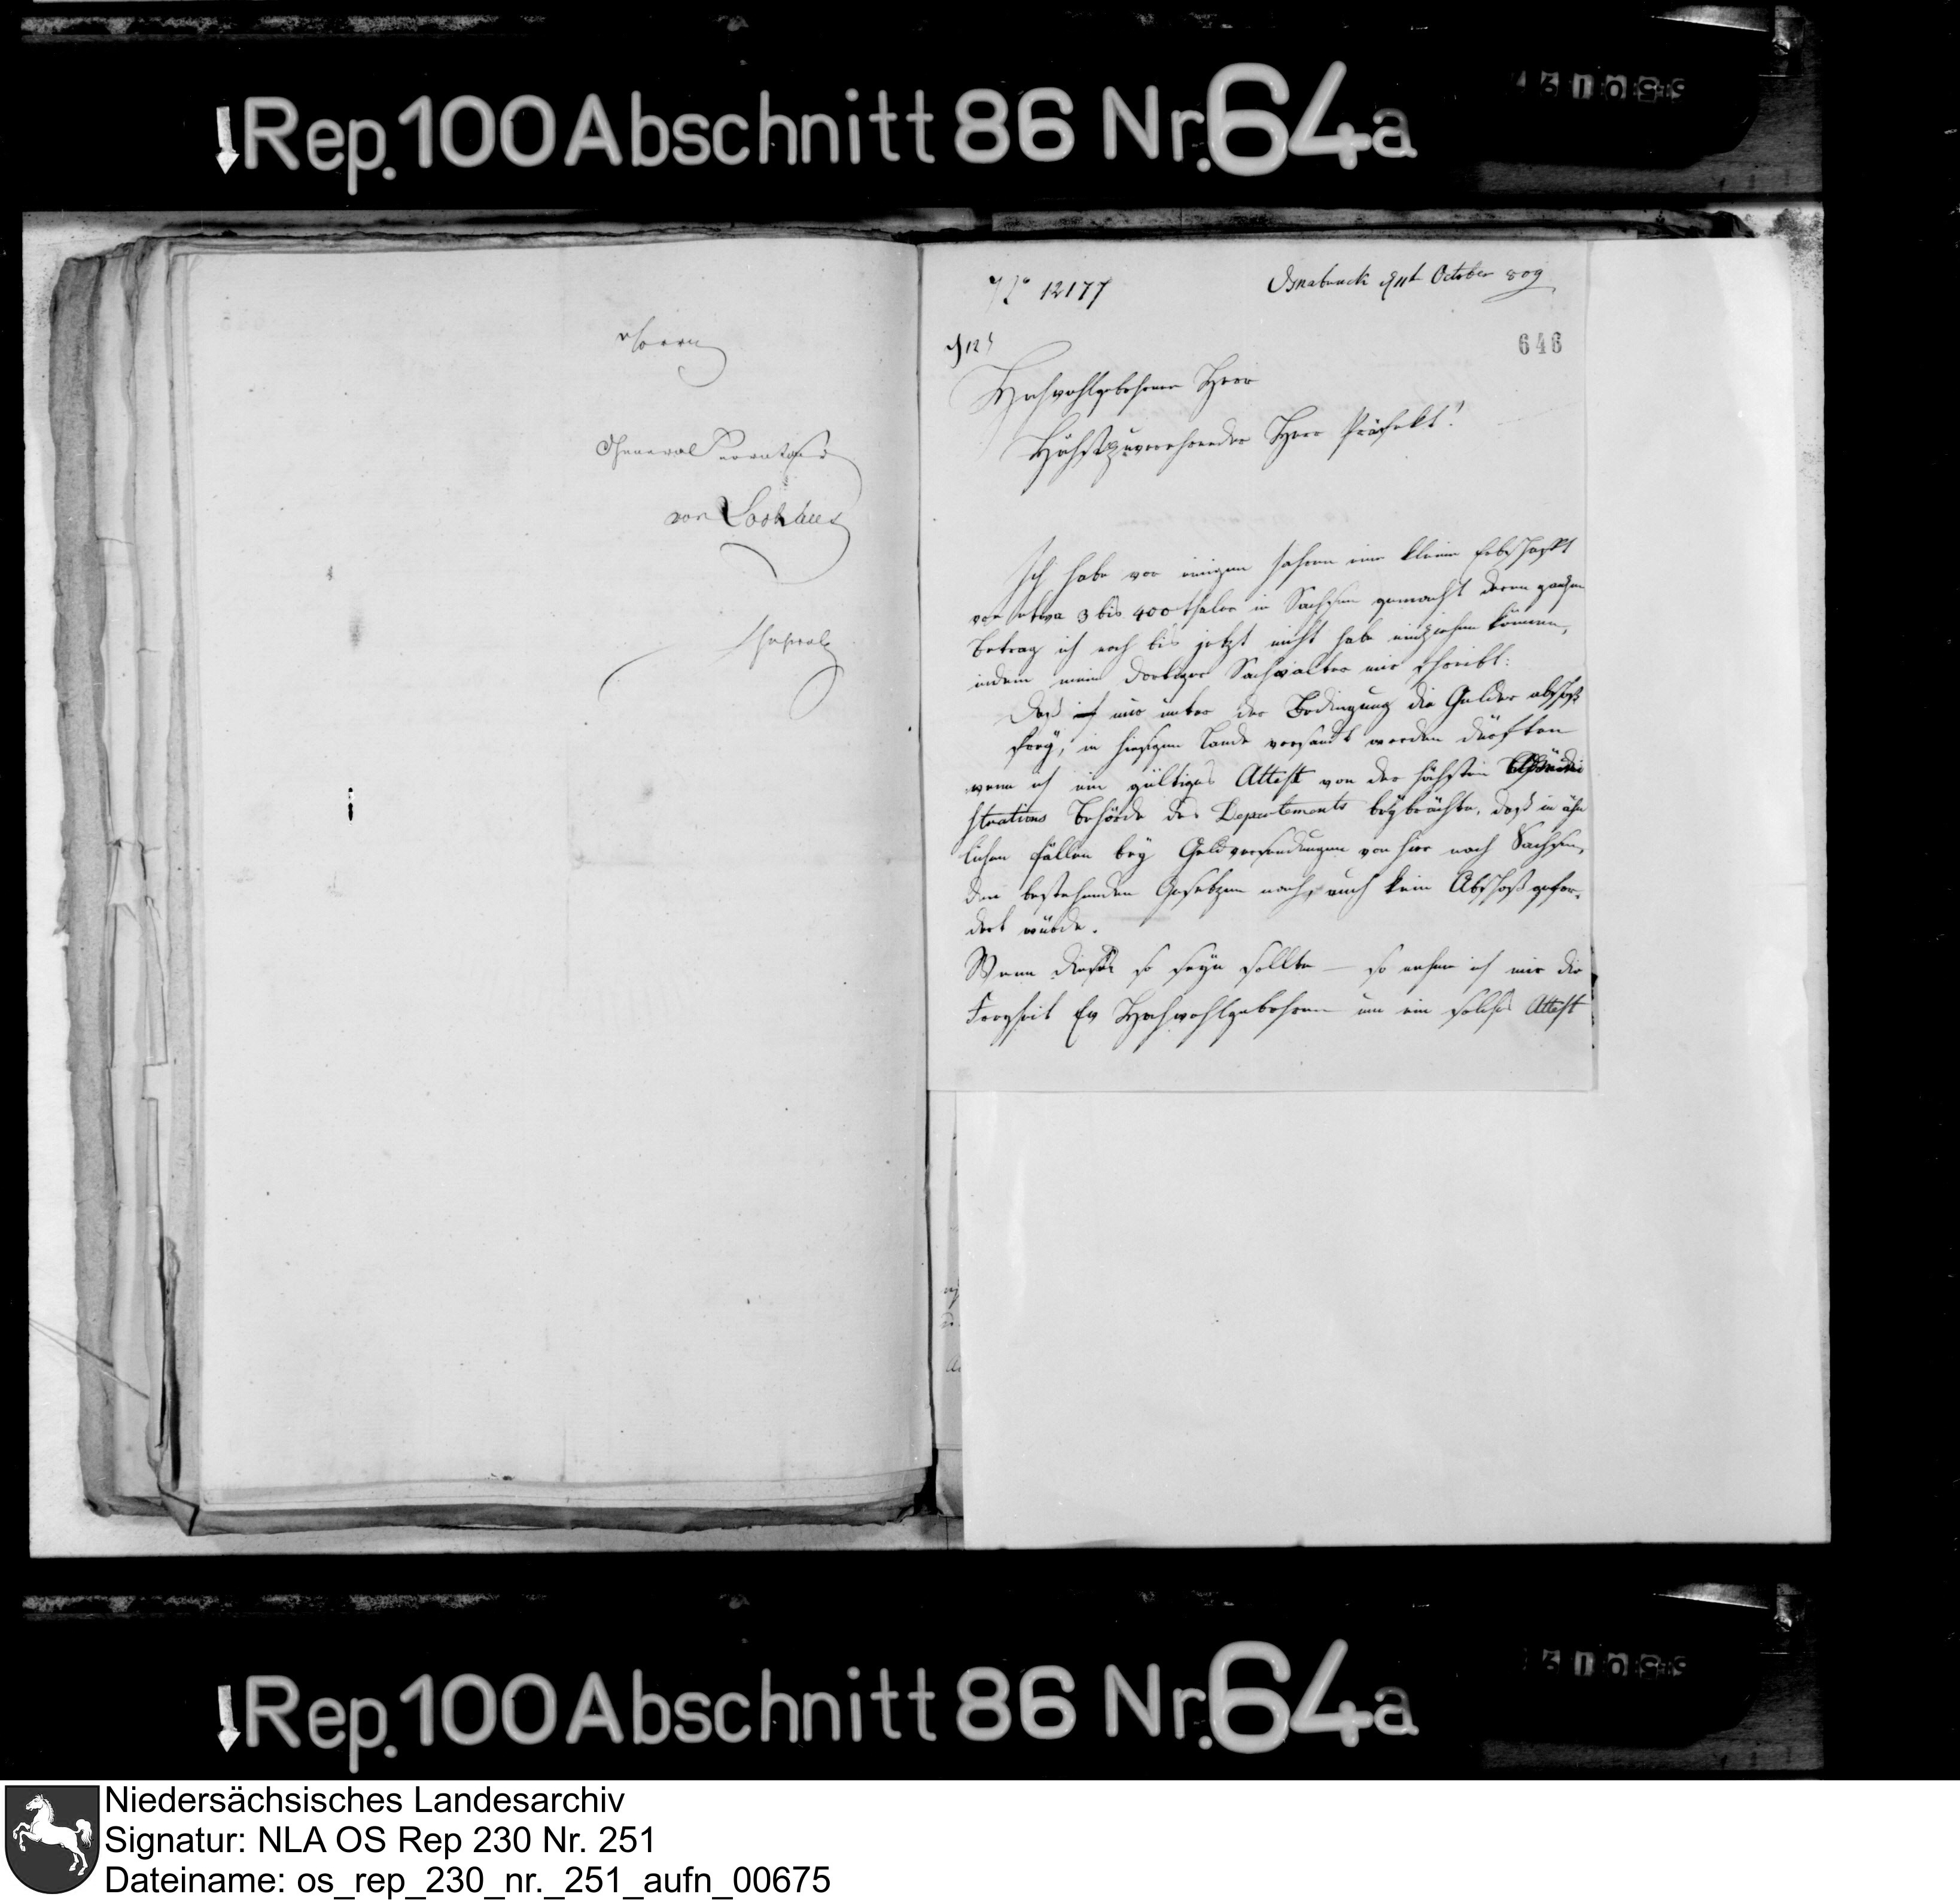 Rep. 100 Abschnitt 86 Nr. 64a
Herrn
General
von
No 12177
Osnabruck d 11t October 809
646
Hochwohlgebohrner Herr
Höchstzuverehrender Herr Präfekt!
Ich habe vor einigen Jahren eine kleine Erbschafft
von etwa 3 bis 400 thaler in Sachsen gemacht deren ganzen
Betrag ich noch bis jetzt nicht habe einziehen können,
indem mein dortiger Sachwalter mir schreibt:
daß nur unter der Bedingung die Gelder abschoß
frey, in hiesigem Lande versandt werden dürften
wenn ich ein gültiges Attest von der höchsten
strations Behörde des Departements beybrächte, daß in ähn
lichen Fällen bey Geldversendungen von hier nach Sachsen,
den bestehenden Gesetzen nach, auch kein Abschoß gefor-
dert würde.
Wenn dieses so seyn sollte – so nehme ich mir die
Freyheit Ew Hochwohlgebohren um ein solches Attest
Rep. 100 Abschnitt 86 Nr. 64a
Niedersächsisches Landesarchiv
Signatur: NLA OS Rep 230 Nr. 251
Dateiname: os_rep_230_nr._251_aufn_00675